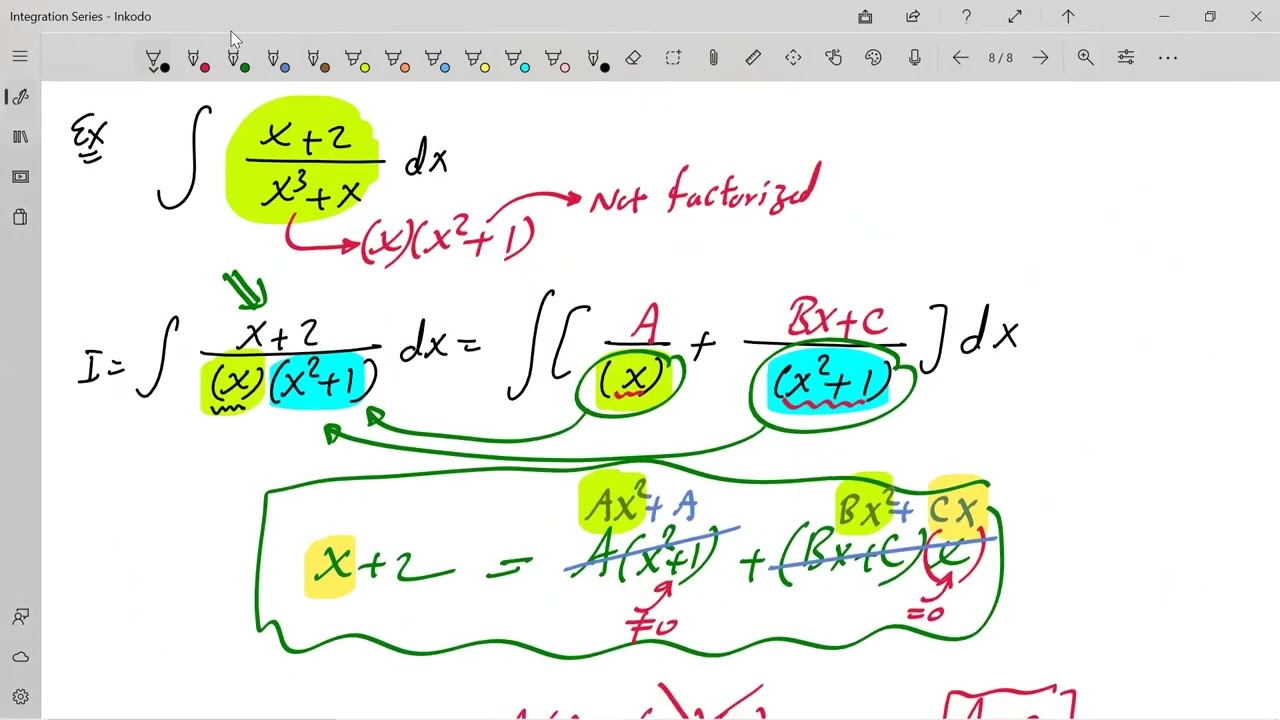 Integration Series - Inkodo
8/8
Ex ∫ x+2 / x³+x dx
(x)(x²+1) → Not factorized
I = ∫ x+2 / (x)(x²+1) dx = ∫ [ A / (x) + Bx+C / (x²+1) ] dx
Ax²+A Bx²+Cx
x+2 = A(x²+1) + (Bx+C)(x)
≠0 =0